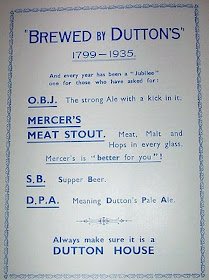 "BREWED BY DUTTON'S"
1799—1935.
And every year has been a "Jubilee"
one for those who have asked for:
O.B.J. The strong Ale with a kick in it.
MERCER'S
MEAT STOUT. Meat, Malt and
Hops in every glass.
Mercer's is "better for you"!
S.B. Supper Beer.
D.P.A. Meaning Dutton's Pale Ale.
Always make sure it is a
DUTTON HOUSE